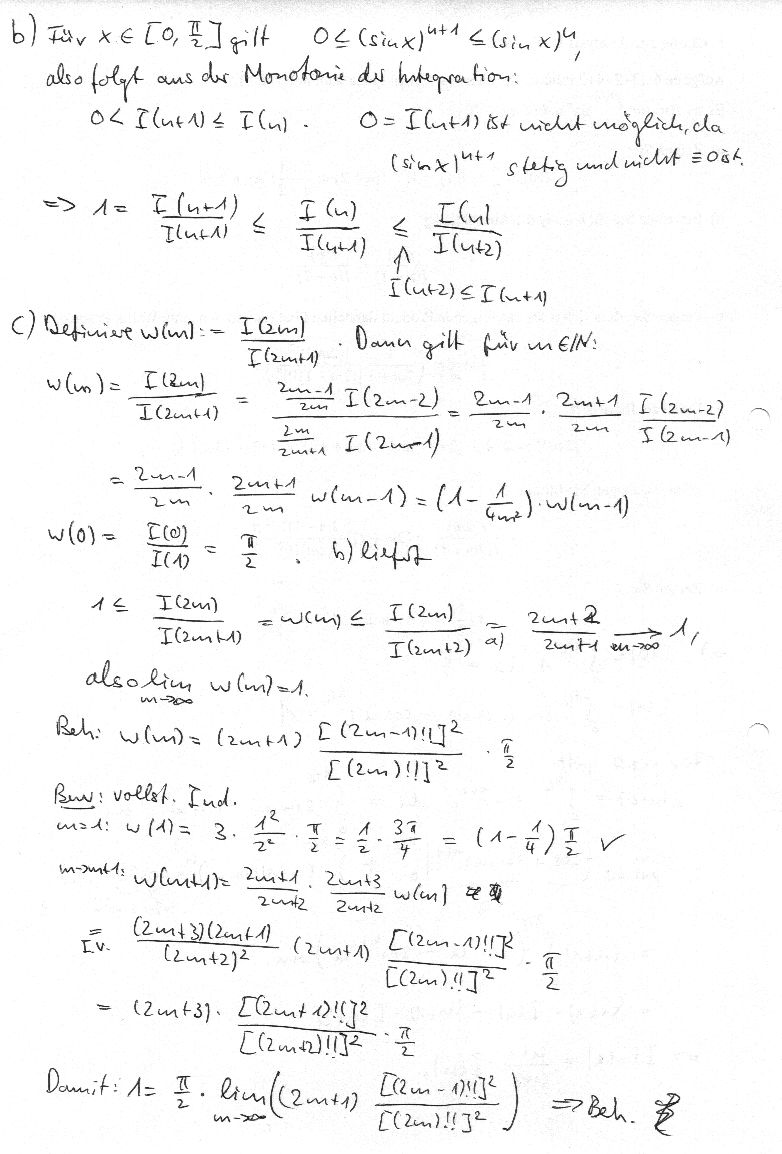 b) Für x ∈ [0, π/2] gilt 0 ≤ (sin x)^{n+1} ≤ (sin x)^n,
also folgt aus der Monotonie der Integration:
0 < I(n+1) ≤ I(n). 0 = I(n+1) ist nicht möglich, da
(sin x)^{n+1} stetig und nicht ≡ 0 ist.
=> 1 = I(n+1)/I(n+1) ≤ I(n)/I(n+1) ≤ I(n)/I(n+2)
↑
I(n+2) ≤ I(n+1)
c) Definiere w(m) := I(2m)/I(2m+1). Dann gilt für m ∈ ℕ:
w(m) = I(2m)/I(2m+1) = ((2m-1)/2m I(2m-2))/(2m/(2m+1) I(2m-1)) = (2m-1)/2m · (2m+1)/2m I(2m-2)/I(2m-1)
= (2m-1)/2m · (2m+1)/2m w(m-1) = (1 - 1/4m²) · w(m-1)
w(0) = I(0)/I(1) = π/2. b) liefert
1 ≤ I(2m)/I(2m+1) = w(m) ≤ I(2m)/I(2m+2) =_{a)} (2m+2)/(2m+1) →_{m→∞} 1,
also lim_{m→∞} w(m) = 1.
Beh: w(m) = (2m+1) [(2m-1)!!]²/[(2m)!!]² · π/2
Bew: vollst. Ind.
m=1: w(1) = 3 · 1²/2² · π/2 = 1/2 · 3π/4 = (1 - 1/4) π/2 ✓
m→m+1: w(m+1) = (2m+1)/(2m+2) · (2m+3)/(2m+2) w(m)
=_{I.V.} (2m+3)(2m+1)/(2m+2)² (2m+1) [(2m-1)!!]²/[(2m)!!]² · π/2
= (2m+3) · [(2m+1)!!]²/[(2m+2)!!]² · π/2
Damit: 1 = π/2 · lim_{m→∞} ((2m+1) [(2m-1)!!]²/[(2m)!!]²) => Beh.